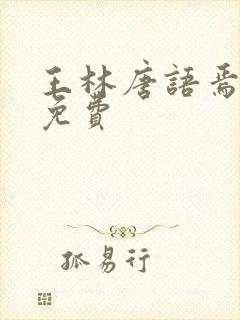 王林唐語焉
免費
孤易行